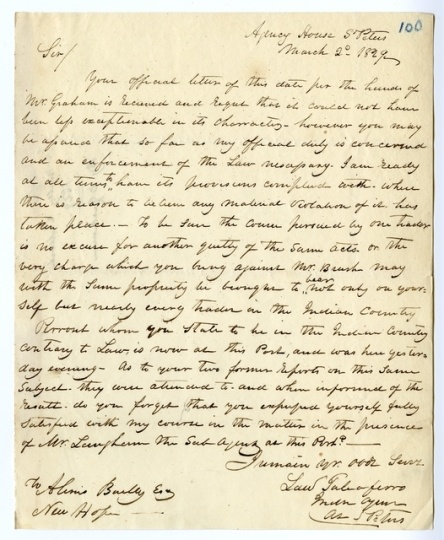 100
Agency House St Peters
March 2d 1829
Sir/
Your official letter of this date per the hands of
Mr. Graham is Received and Regret that it could not have
been less exceptionable in its character - however you may
be assured that so far as my official duty is concerned
and an enforcement of the Law necessary. I am ready
at all times to have its provisions complied with. where
there is reason to believe any material violation of it has
taken place. - to be sure the course pursued by one trader
is no excuse for another guilty of the same acts. or the
very charge which you bring against Mr. Brush may
with the same propriety be brought to bear not only on your-
self but nearly every trader in the Indian Country
whom you State to be in the Indian Country
contrary to Law, is now at this Post, and was here yester-
day evening - As to your two former Reports on this Same
Subject. they were attended to - and when informed of the
Result. do you forget that you expressed yourself fully
Satisfied with my course in the matter in the presence
of Mr. Langham the Sub Agent at this Post? -
I remain yr. obdt Servt
Law Taliaferro
Indn Agent
At St Peters
To Alexis Bailly Esq
New Hope -